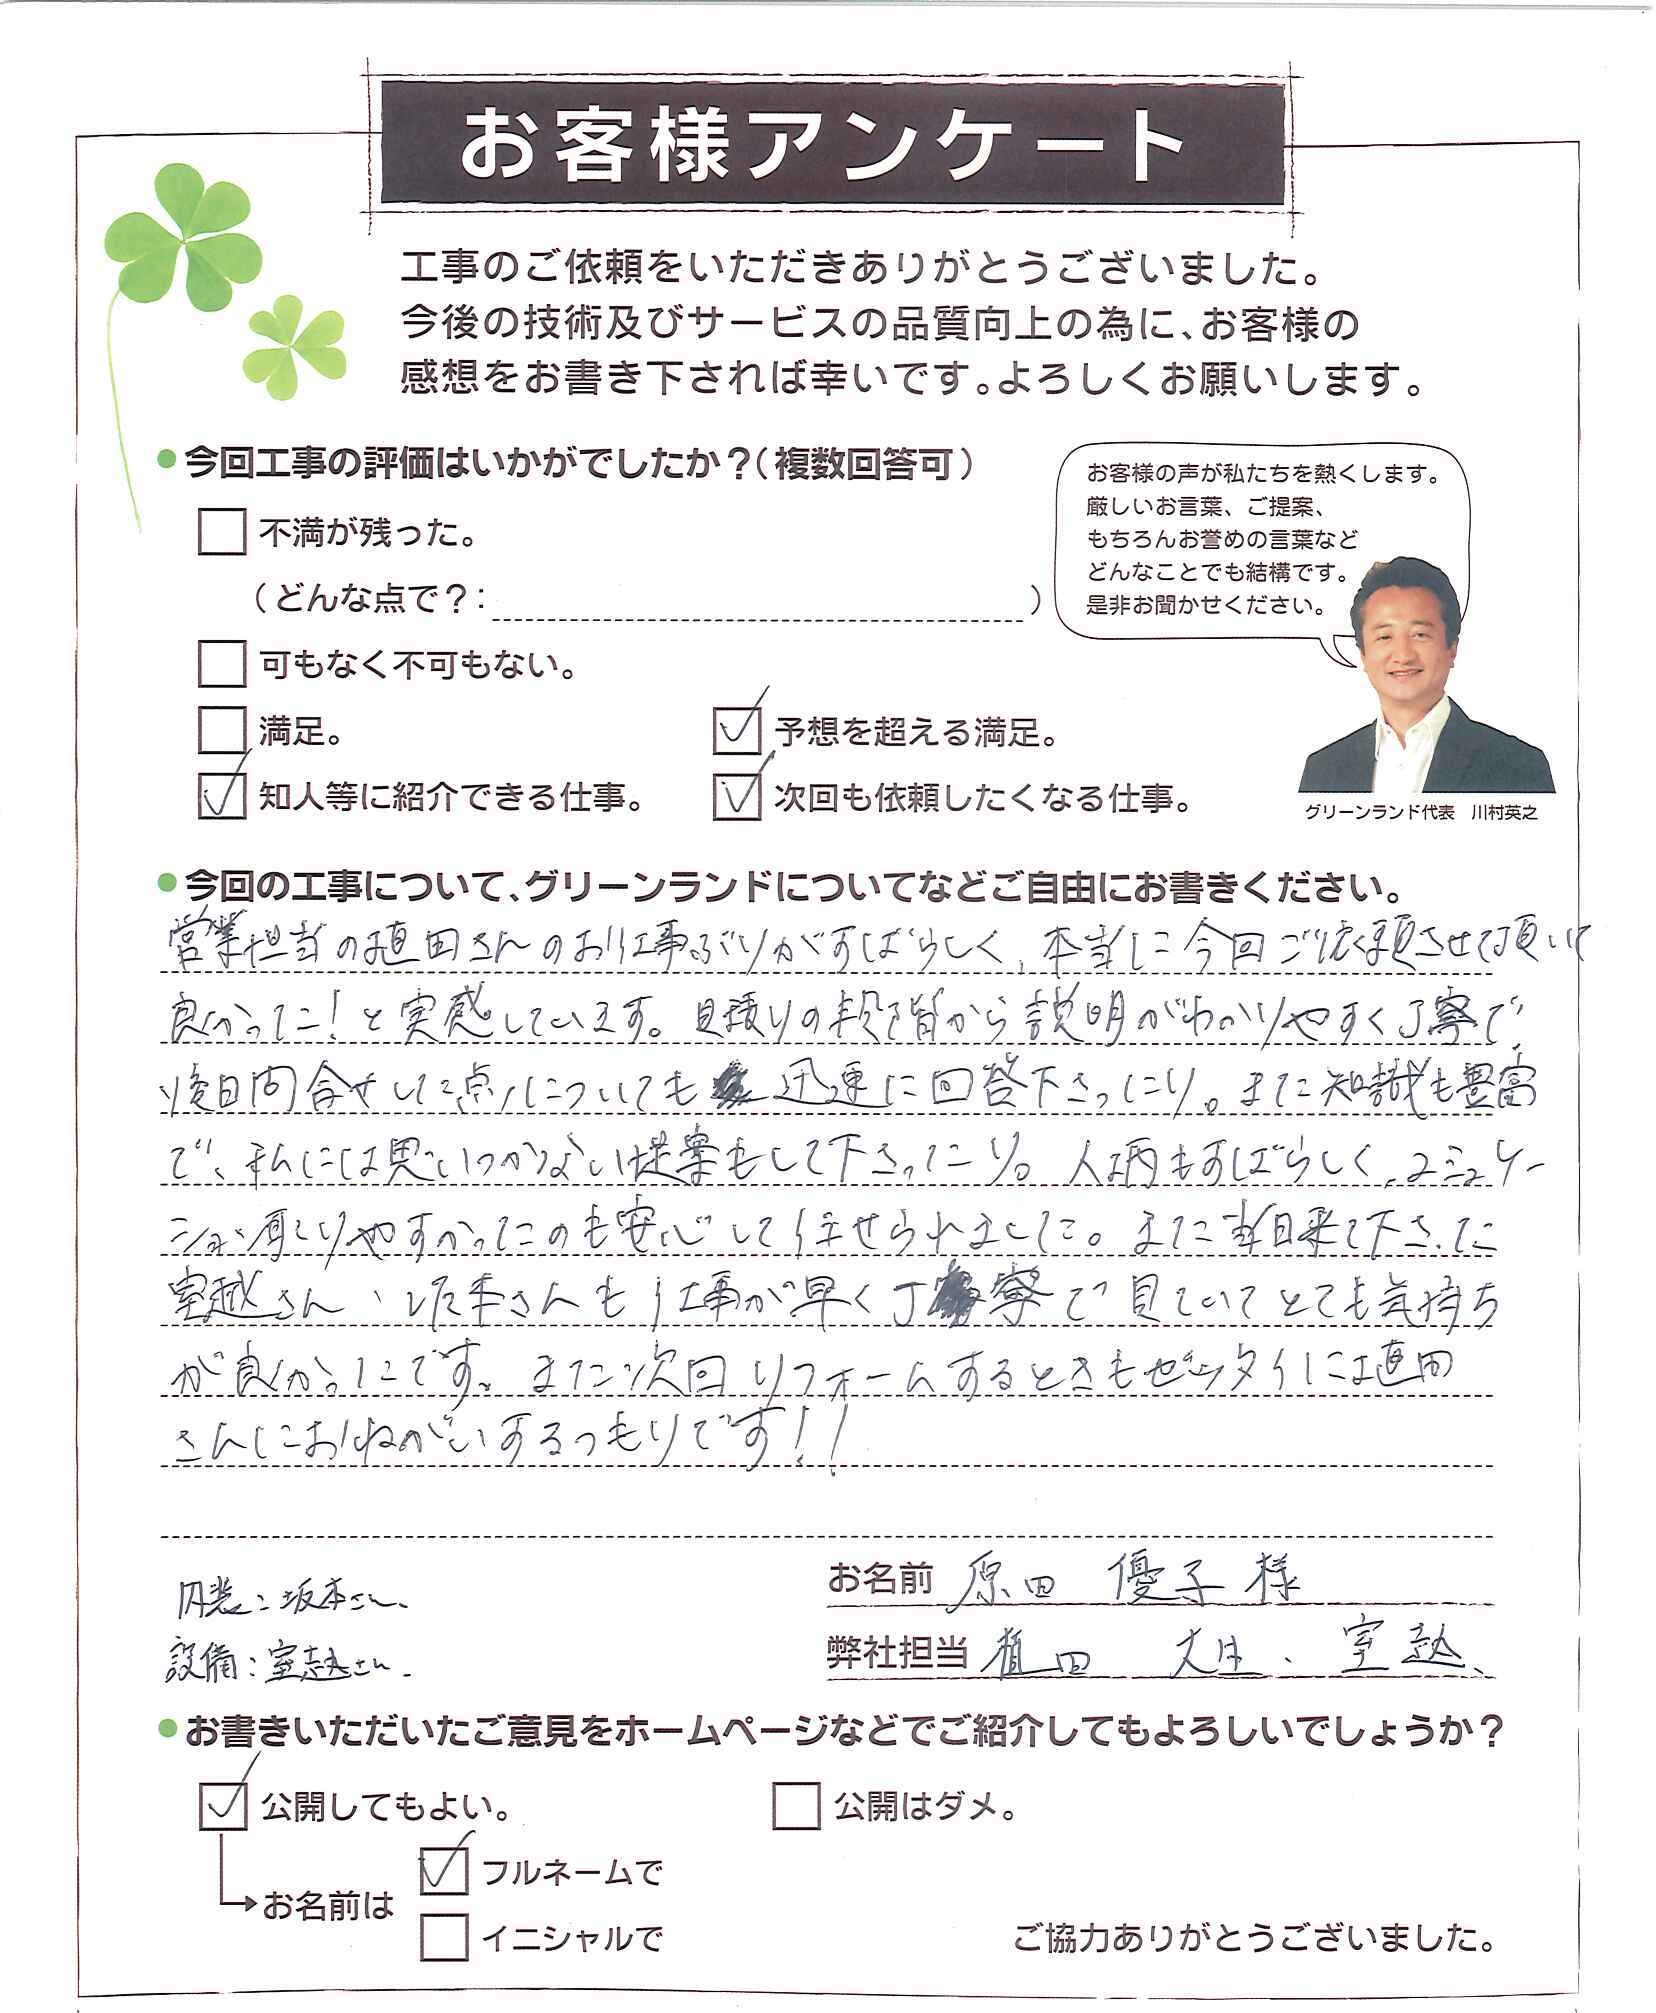 お客様アンケート
工事のご依頼をいただきありがとうございました。
今後の技術及びサービスの品質向上の為に、お客様の
感想をお書き下されば幸いです。よろしくお願いします。
今回工事の評価はいかがでしたか？（複数回答可）
お客様の声が私たちを熱くします。
厳しいお言葉、ご提案、
もちろんお誉めの言葉など
どんなことでも結構です。
是非お聞かせください。
不満が残った。
（どんな点で？： ）
可もなく不可もない。
満足。 予想を超える満足。
知人等に紹介できる仕事。 次回も依頼したくなる仕事。
グリーンランド代表 川村英之
今回の工事について、グリーンランドについてなどご自由にお書きください。
営業担当の植田さんのお仕事ぶりがすばらしく、本当に今回ご依頼させて頂いて
良かった！と実感しています。見積りの段階から説明がわかりやすく丁寧で、
後日問合せした点についても迅速に回答下さったり。また知識も豊富
で、私には思いつかない提案もして下さったり。人柄もすばらしく、コミュケー
ション取りやすかったのも安心して任せられました。また当日来て下さった
室越さん、坂本さんも仕事が早く丁寧で見ていてとても気持ち
が良かったです。また次回リフォームするときもゼッタイには植田
さんにおねがいするつもりです！！
内装：坂本さん、
設備：室越さん、
お名前 原田 優子様
弊社担当 植田 室越、
お書きいただいたご意見をホームページなどでご紹介してもよろしいでしょうか？
公開してもよい。 公開はダメ。
お名前は フルネームで
イニシャルで
ご協力ありがとうございました。